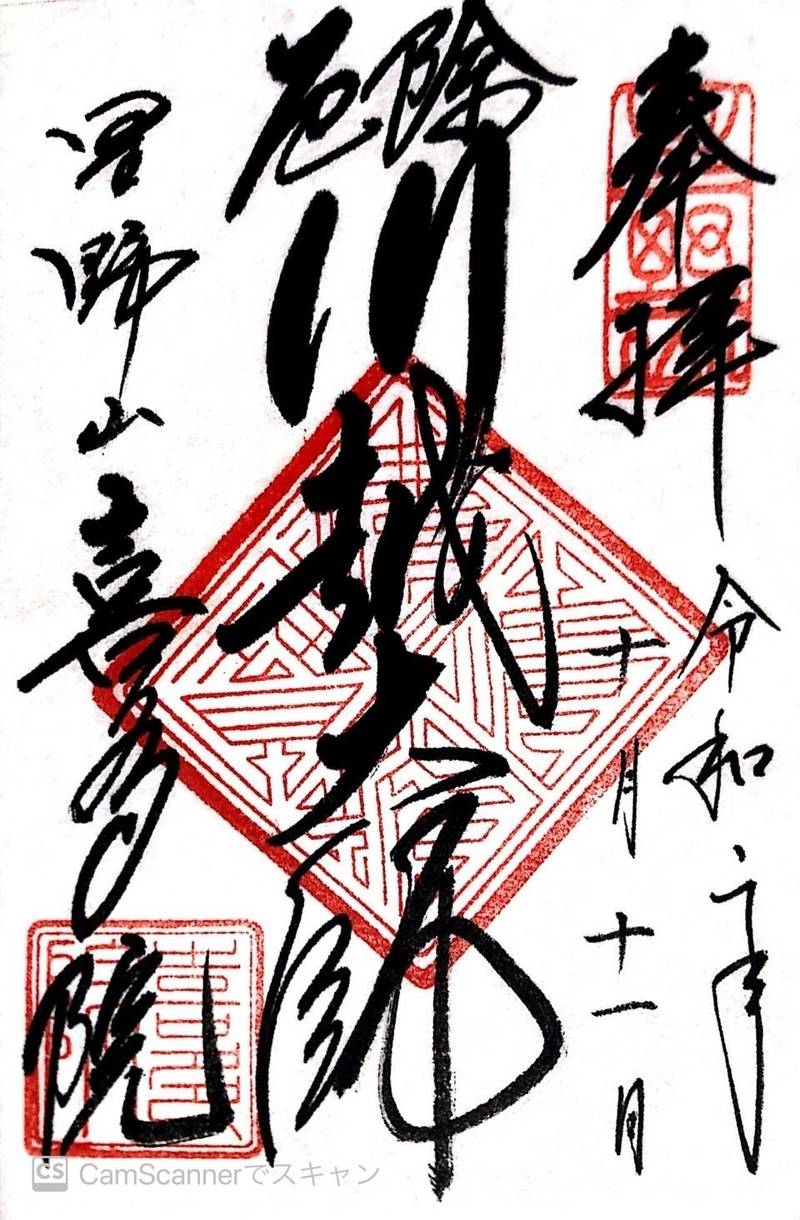 奉拝
令和六年
十月十一日
厄除
川越大師
星野山
喜多院
CS CamScannerでスキャン